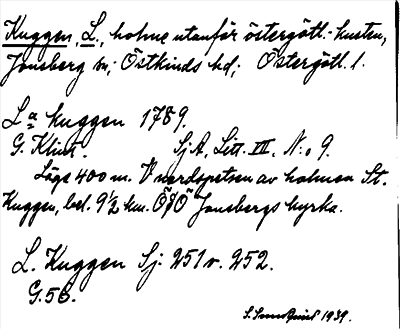 Kuggen, L., holme utanför östergötl. kusten,
Jonsberg sn; Östkinds hd; Östergötl. l.
La kuggen 1789.
G. Klint. SjA, Litt. VII. N:o 9.
Läge 400 m. V nordspetsen av holmen St.
Kuggen, bel. 9½ km. ÖfÖ Jonsbergs kyrka.
L. Kuggen Sj. 251 v. 252.
G. 56.
S. Sundquist 1939.